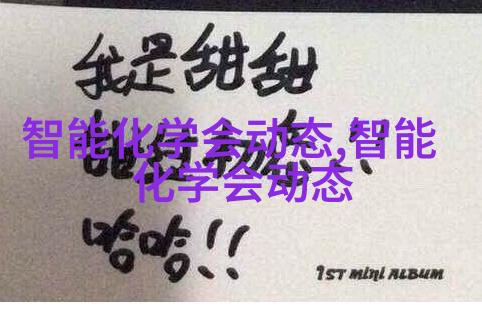 我是甜甜
智能化学会动态,智能
化学会动态
哈哈!!
1ST MINI ALBUM